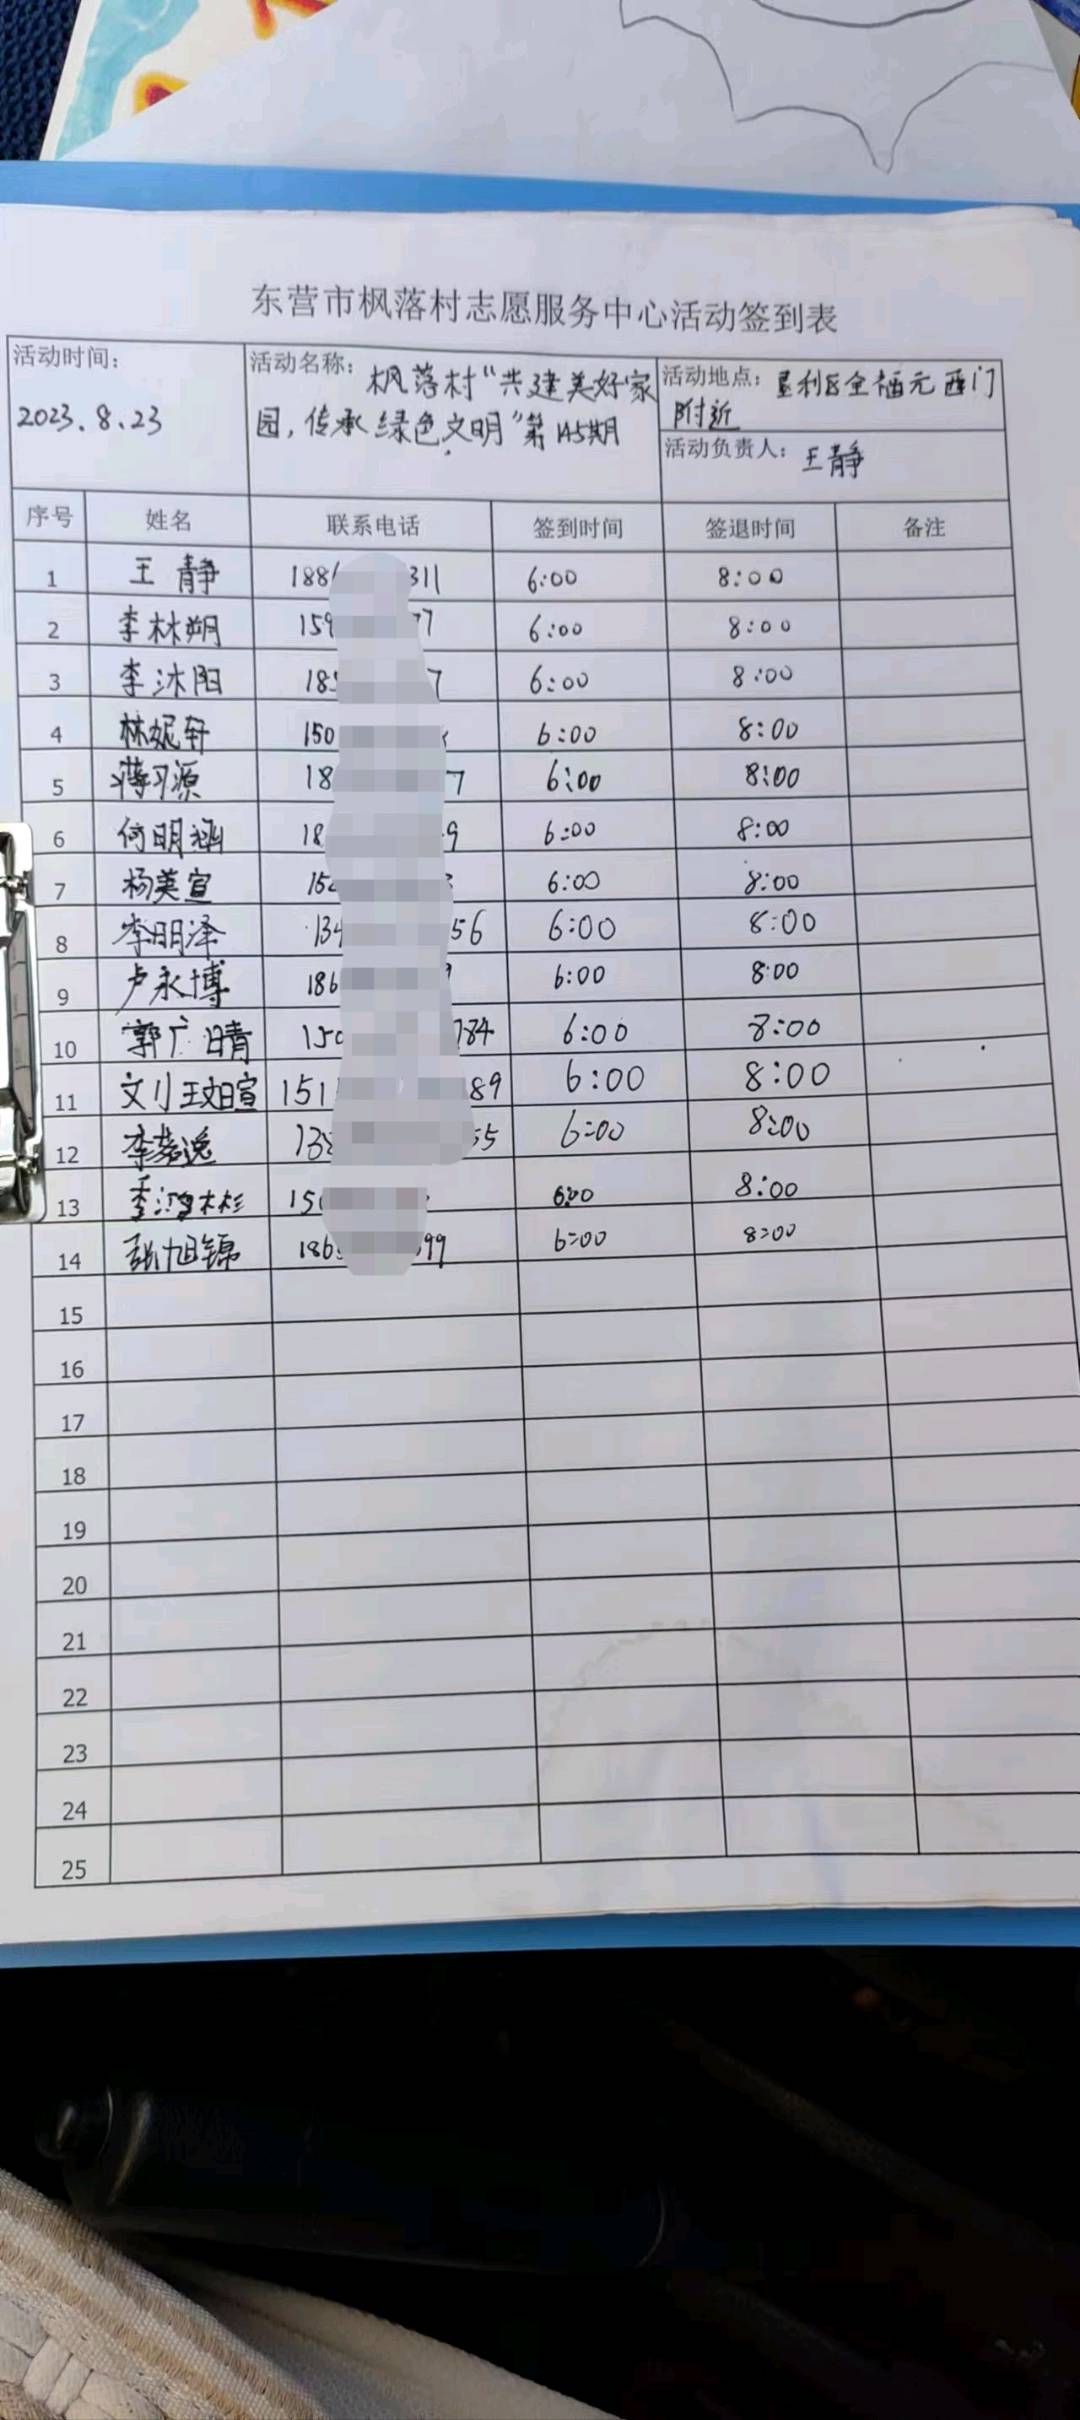 东营市枫落村志愿服务中心活动签到表
活动时间：
2023.8.23
活动名称：枫落村“共建美好家
园，传承绿色文明”第145期
活动地点：垦利区全福元西门
附近
活动负责人：王静
序号 姓名 联系电话 签到时间 签退时间 备注
1 王静 188 311 6:00 8:00
2 李林朔 159 77 6:00 8:00
3 李沐阳 185 7 6:00 8:00
4 林妮轩 150 6:00 8:00
5 薄习源 18 7 6:00 8:00
6 何明涵 18 9 6:00 8:00
7 杨美宣 152 6:00 8:00
8 李明泽 134 56 6:00 8:00
9 卢永博 186 6:00 8:00
10 郭广晴 150 784 6:00 8:00
11 刘玟暄 151 89 6:00 8:00
12 138 55 6:00 8:00
13 150 6:00 8:00
14 张旭锦 186 99 6:00 8:00
15
16
17
18
19
20
21
22
23
24
25